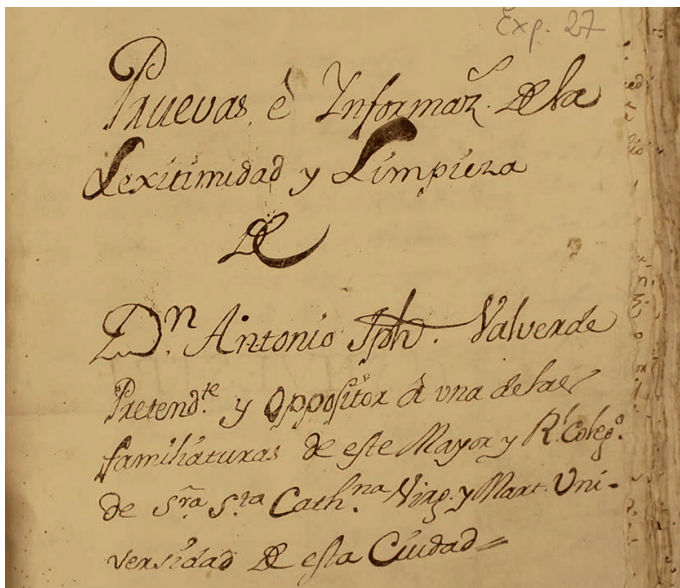 Exp. 27
Pruevas, è Informaz.ⁿ de la
Lexitimidad y Limpieza
De
D.ⁿ Antonio Jph. Valverde
Pretend.te y Oppositor à vna delas
familiaturas de este Mayor y R.l Coleg.o
de S.ra S.ta Cath.na Virg. y Mart. Uni-
versidad de esta Ciudad=